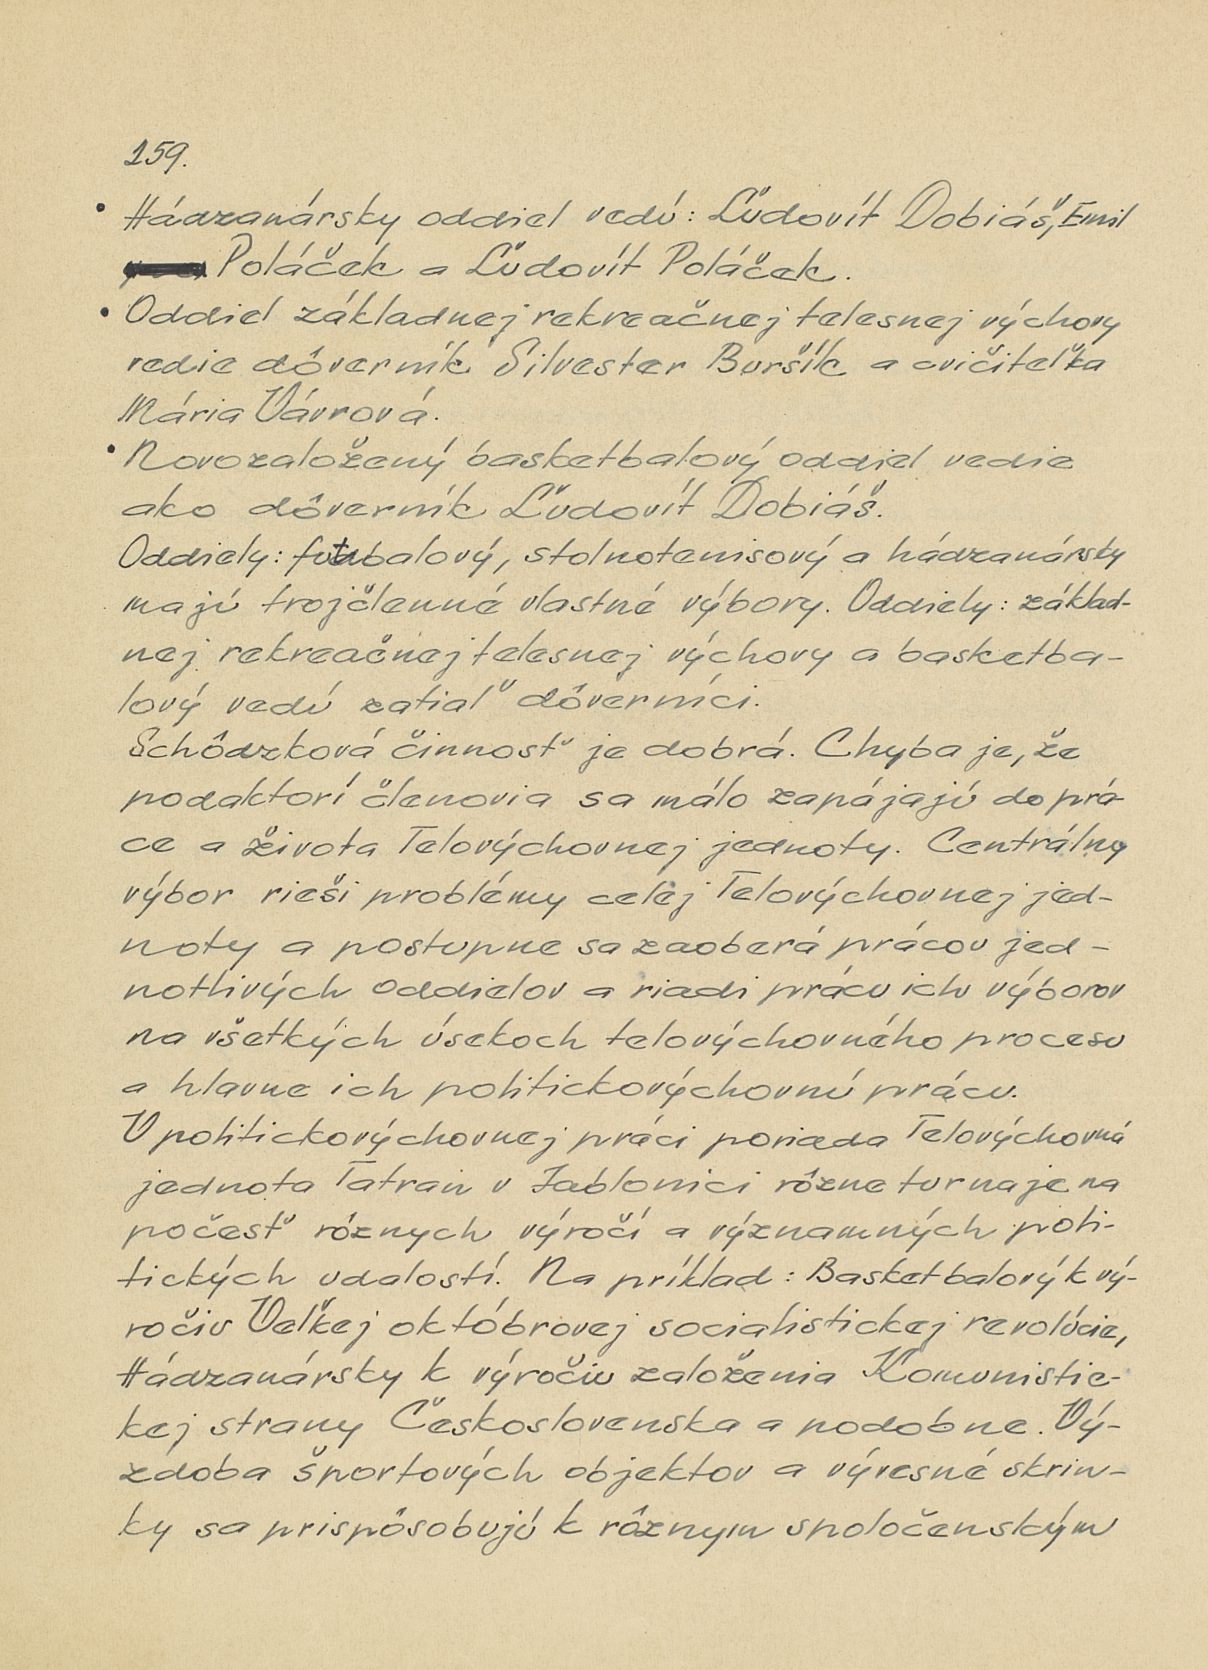 159.
• Hádzanársky oddiel vedú: Ľudovít Dobiáš, Emil
Poláček a Ľudovít Poláček.
• Oddiel základnej rekreačnej telesnej výchovy
vedie dôverník Silvester Buršík a cvičiteľka
Mária Vávrová.
• Novozaložený basketbalový oddiel vedie
ako dôverník Ľudovít Dobiáš.
Oddiely: futbalový, stolnotenisový a hádzanársky
majú trojčlenné vlastné výbory. Oddiely: základ-
nej rekreačnej telesnej výchovy a basketba-
lový vedú zatiaľ dôverníci.
Schôdzková činnosť je dobrá. Chyba je, že
podaktorí členovia sa málo zapájajú do prá-
ce a života Telovýchovnej jednoty. Centrálny
výbor rieši problémy celej Telovýchovnej jed-
noty a postupne sa zaoberá prácou jed-
notlivých oddielov a riadi prácu ich výborov
na všetkých úsekoch telovýchovného procesu
a hlavne ich politickovýchovnú prácu.
V politickovýchovnej práci poriada Telovýchovná
jednota Tatran v Jablonici rôzne turnaje na
počesť róznych výročí a významných poli-
tických udalostí. Na príklad: Basketbalový k vý-
ročiu Veľkej októbrovej socialistickej revolúcie,
Hádzanársky k výročiu založenia Komunistic-
kej strany Československa a podobne. Vý-
zdoba športových objektov a vývesné skrin-
ky sa prispôsobujú k rôznym spoločenským